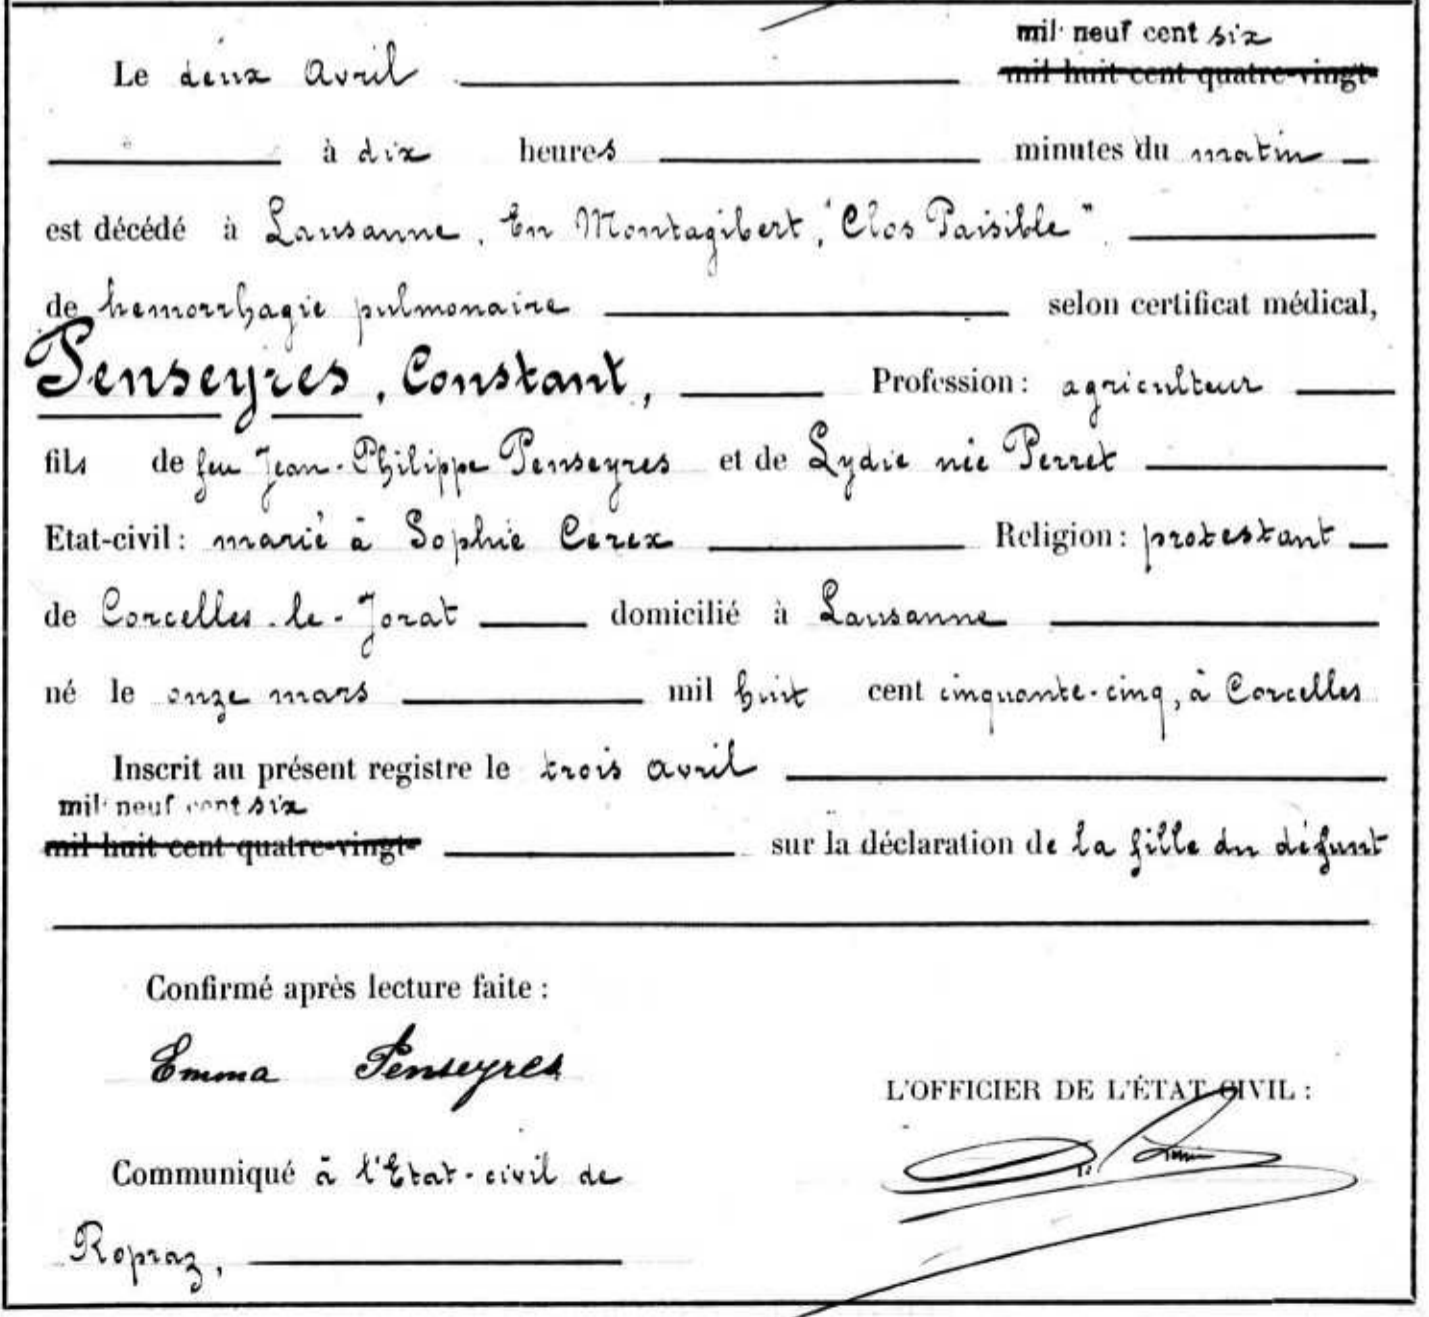 mil neuf cent six
Le deux Avril mil huit cent quatre-vingt-
à dix heures minutes du matin
est décédé à Lausanne, En Montagibert, "Clos Paisible",
de hemorrhagie pulmonaire selon certificat médical,
Penseyres, Constant, Profession: agriculteur
fils de feu Jean-Philippe Penseyres et de Lydie née Perret
Etat-civil: marié à Sophie Cerex Religion: protestant
de Corcelles-le-Jorat domicilié à Lausanne
né le onze mars mil huit cent cinquante-cinq, à Corcelles
Inscrit au présent registre le trois avril
mil neuf cent six
mil huit cent quatre-vingt- sur la déclaration de la fille du défunt
Confirmé après lecture faite:
Emma Penseyres
L'OFFICIER DE L'ÉTAT CIVIL:
Communiqué à l'Etat-civil de
Ropraz,